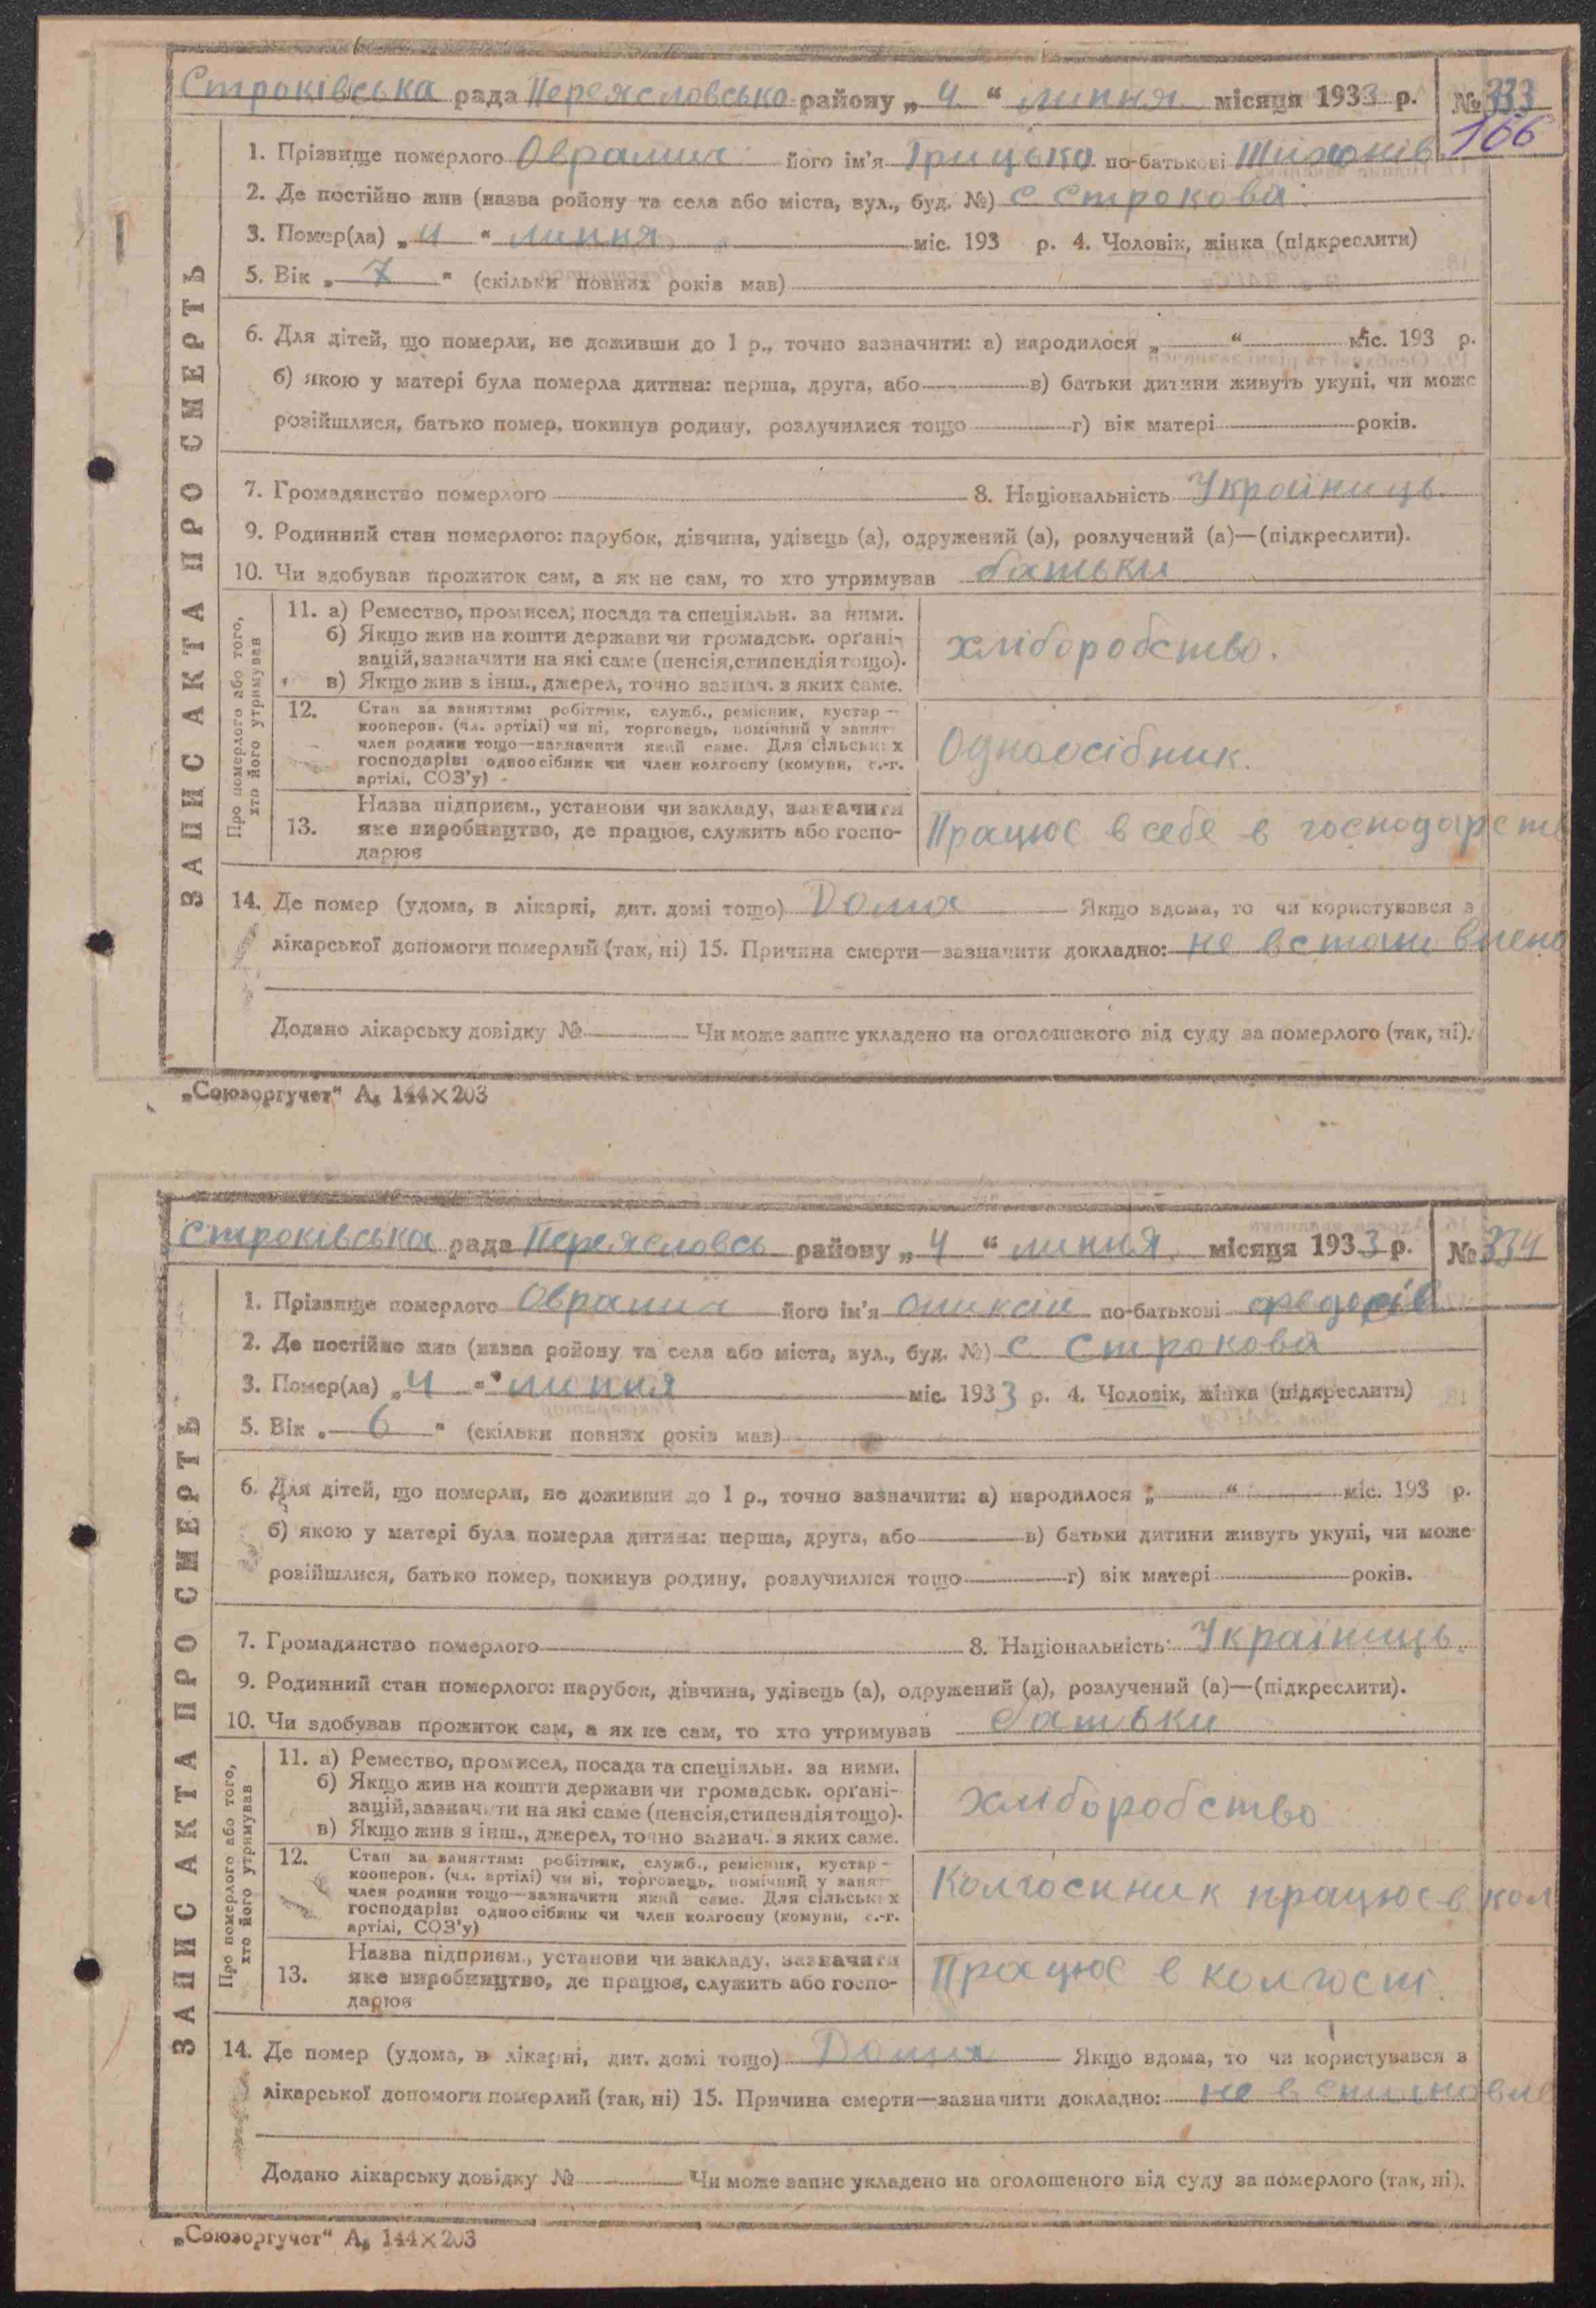 Строківська рада Переясловсько району „ 4 “ липня місяця 1933 р. № 333
166
1. Прізвище померлого його ім'я Грицько по-батькові
2. Де постійно жив (назва ройону та села або міста, вул., буд. №) с Строкова
3. Помер(ла) „ 4 “ липня міс. 193 р. 4. Чоловік, жінка (підкреслити)
5. Вік „ 7 “ (скільки повних років мав)
6. Для дітей, що померли, не доживши до 1 р., точно зазначити: а) народилося „ “ міс. 193 р.
б) якою у матері була померла дитина: перша, друга, або в) батьки дитини живуть укупі, чи може
розійшлися, батько помер, покинув родину, розлучилися тощо г) вік матері років.
7. Громадянство померлого 8. Національність Україниць
9. Родинний стан померлого: парубок, дівчина, удівець (а), одружений (а), розлучений (а)—(підкреслити).
10. Чи здобував прожиток сам, а як не сам, то хто утримував батьки
Про померлого або того, хто його утримував
11. а) Ремество, промисел, посада та спеціяльн. за ними.
б) Якщо жив на кошти держави чи громадськ. орґані-
зацій, зазначити на які саме (пенсія, стипендія тощо).
в) Якщо жив з інш., джерел, точно зазнач. з яких саме.
хліборобство.
12. Стан за заняттям: робітник, служб., ремісник, кустар—
кооперов. (чл. артілі) чи ні, торговець, помічний у занят-
член родини тощо—зазначити який саме. Для сільських
господарів: одноосібник чи член колгоспу (комуни, с.-г.
артілі, СОЗ'у)
Одноосібник.
13. Назва підприєм., установи чи закладу, зазначити
яке виробництво, де працює, служить або госпо-
дарює
Працює в себе в господарств
14. Де помер (удома, в лікарні, дит. домі тощо) Дома Якщо вдома, то чи користувався з
лікарської допомоги померлий (так, ні) 15. Причина смерти—зазначити докладно: не встановлено
Додано лікарську довідку № Чи може запис укладено на оголошеного від суду за померлого (так, ні).
ЗАПИС АКТА ПРО СМЕРТЬ
„Союзоргучет“ А₅ 144×203
Строківська рада Переясловсь району „ 4 “ липня місяця 1933 р. № 334
1. Прізвище померлого його ім'я по-батькові федорів
2. Де постійно жив (назва ройону та села або міста, вул., буд. №) с Строкова
3. Помер(ла) „ 4 “ липня міс. 1933 р. 4. Чоловік, жінка (підкреслити)
5. Вік „ 6 “ (скільки повних років мав)
6. Для дітей, що померли, не доживши до 1 р., точно зазначити: а) народилося „ “ міс. 193 р.
б) якою у матері була померла дитина: перша, друга, або в) батьки дитини живуть укупі, чи може
розійшлися, батько помер, покинув родину, розлучилися тощо г) вік матері років.
7. Громадянство померлого 8. Національність Україниць
9. Родинний стан померлого: парубок, дівчина, удівець (а), одружений (а), розлучений (а)—(підкреслити).
10. Чи здобував прожиток сам, а як не сам, то хто утримував батьки
Про померлого або того, хто його утримував
11. а) Ремество, промисел, посада та спеціяльн. за ними.
б) Якщо жив на кошти держави чи громадськ. орґані-
зацій, зазначити на які саме (пенсія, стипендія тощо).
в) Якщо жив з інш., джерел, точно зазнач. з яких саме.
хліборобство
12. Стан за заняттям: робітник, служб., ремісник, кустар-
кооперов. (чл. артілі) чи ні, торговець, помічний у занят-
член родини тощо—зазначити який саме. Для сільських
господарів: одноосібник чи член колгоспу (комуни, с.-г.
артілі, СОЗ'у)
Колгосиник працює в кол
13. Назва підприєм., установи чи закладу, зазначити
яке виробництво, де працює, служить або госпо-
дарює
Працює в колгоспі.
14. Де помер (удома, в лікарні, дит. домі тощо) Дома Якщо вдома, то чи користувався з
лікарської допомоги померлий (так, ні) 15. Причина смерти—зазначити докладно: не встановле
Додано лікарську довідку № Чи може запис укладено на оголошеного від суду за померлого (так, ні).
ЗАПИС АКТА ПРО СМЕРТЬ
„Союзоргучет“ А₅ 144×203